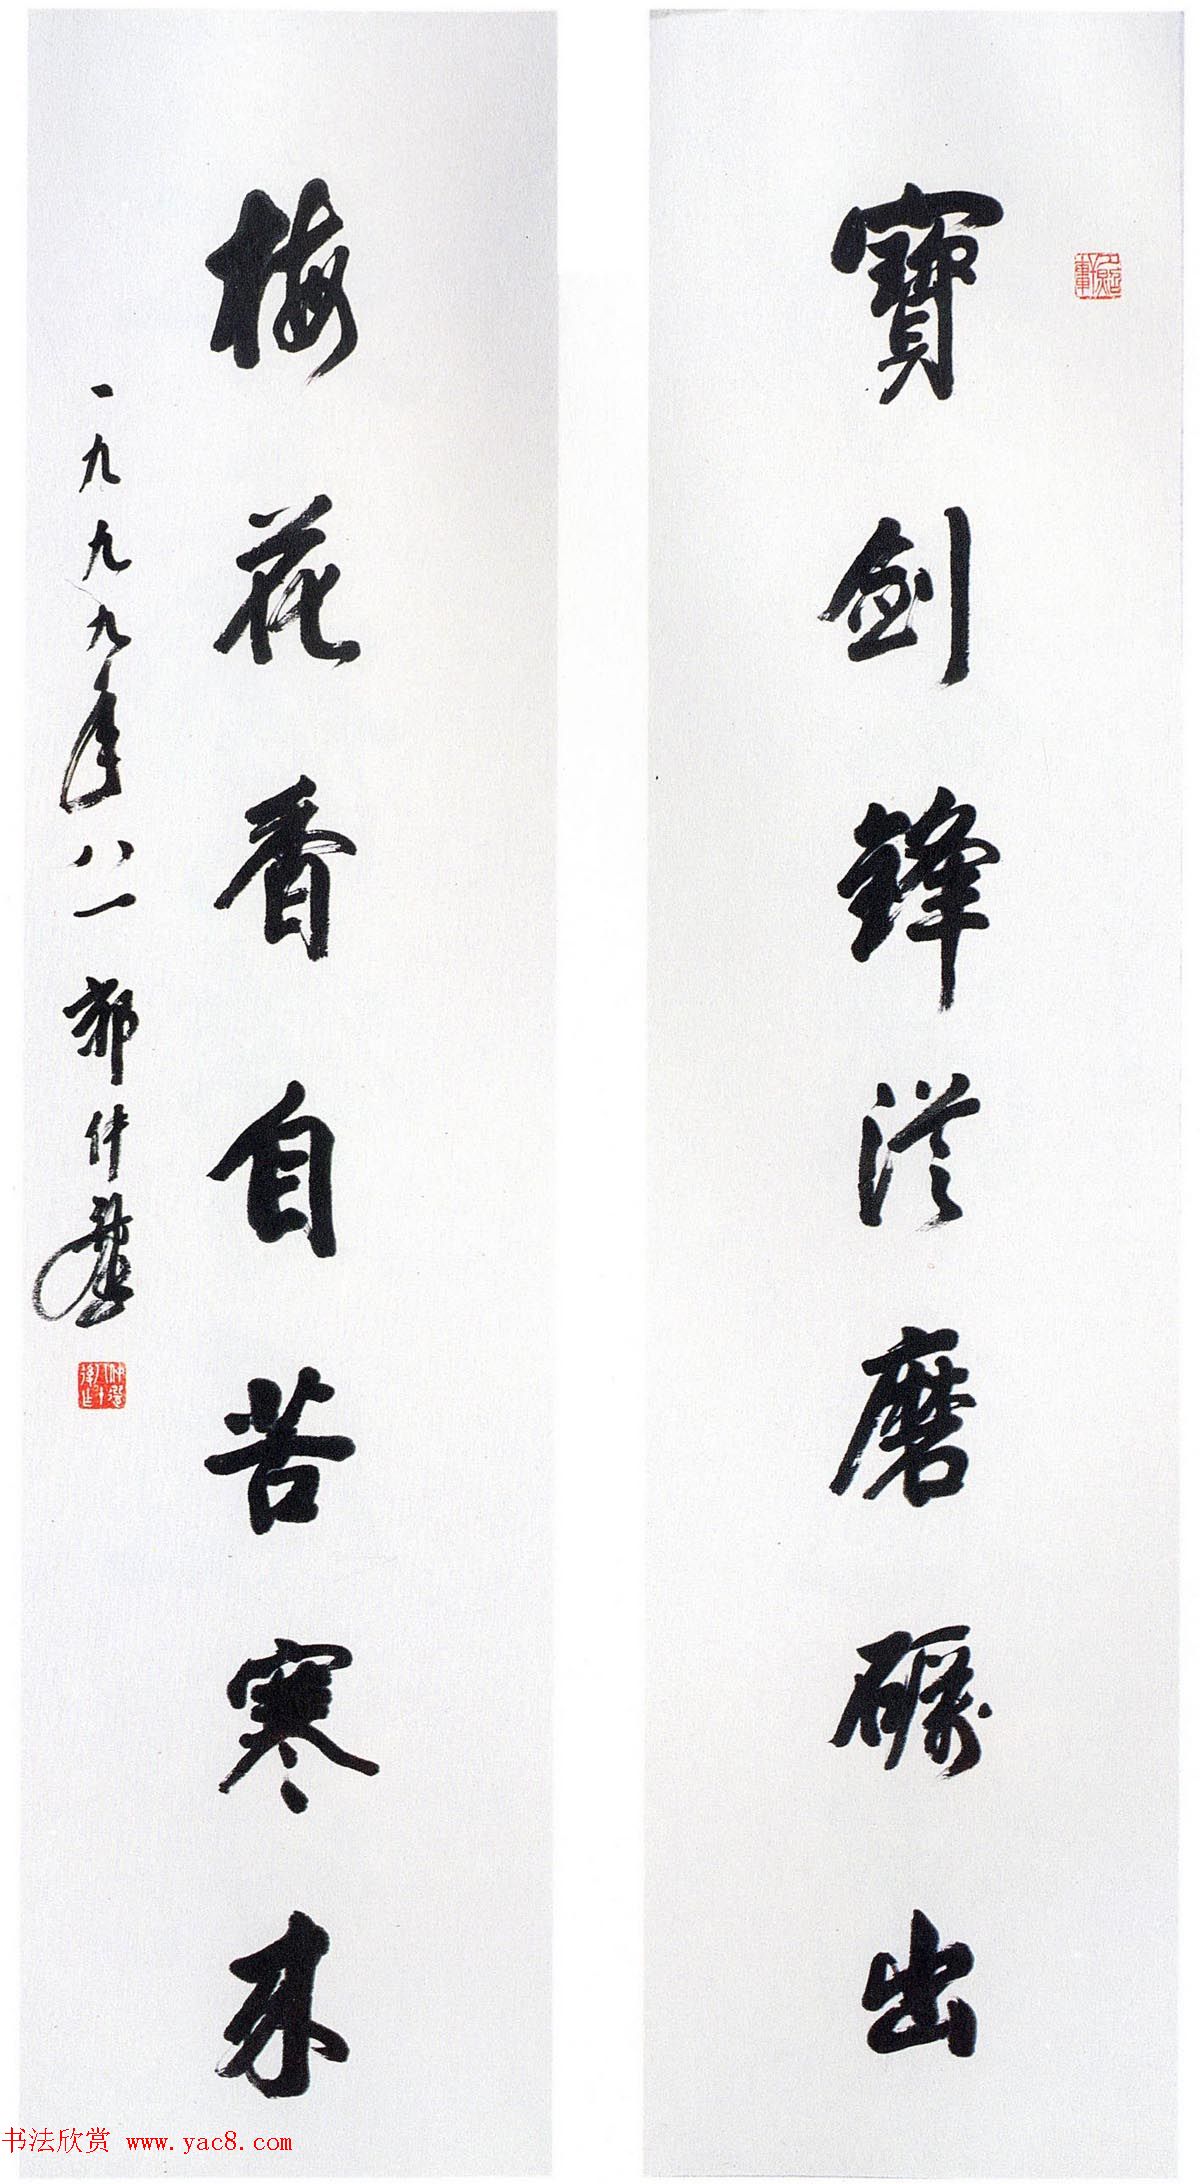 寶劍鋒從磨礪出
梅花香自苦寒來
一九九九年八一郭仲選
仲選八十後作
书法欣赏 www.yac8.com